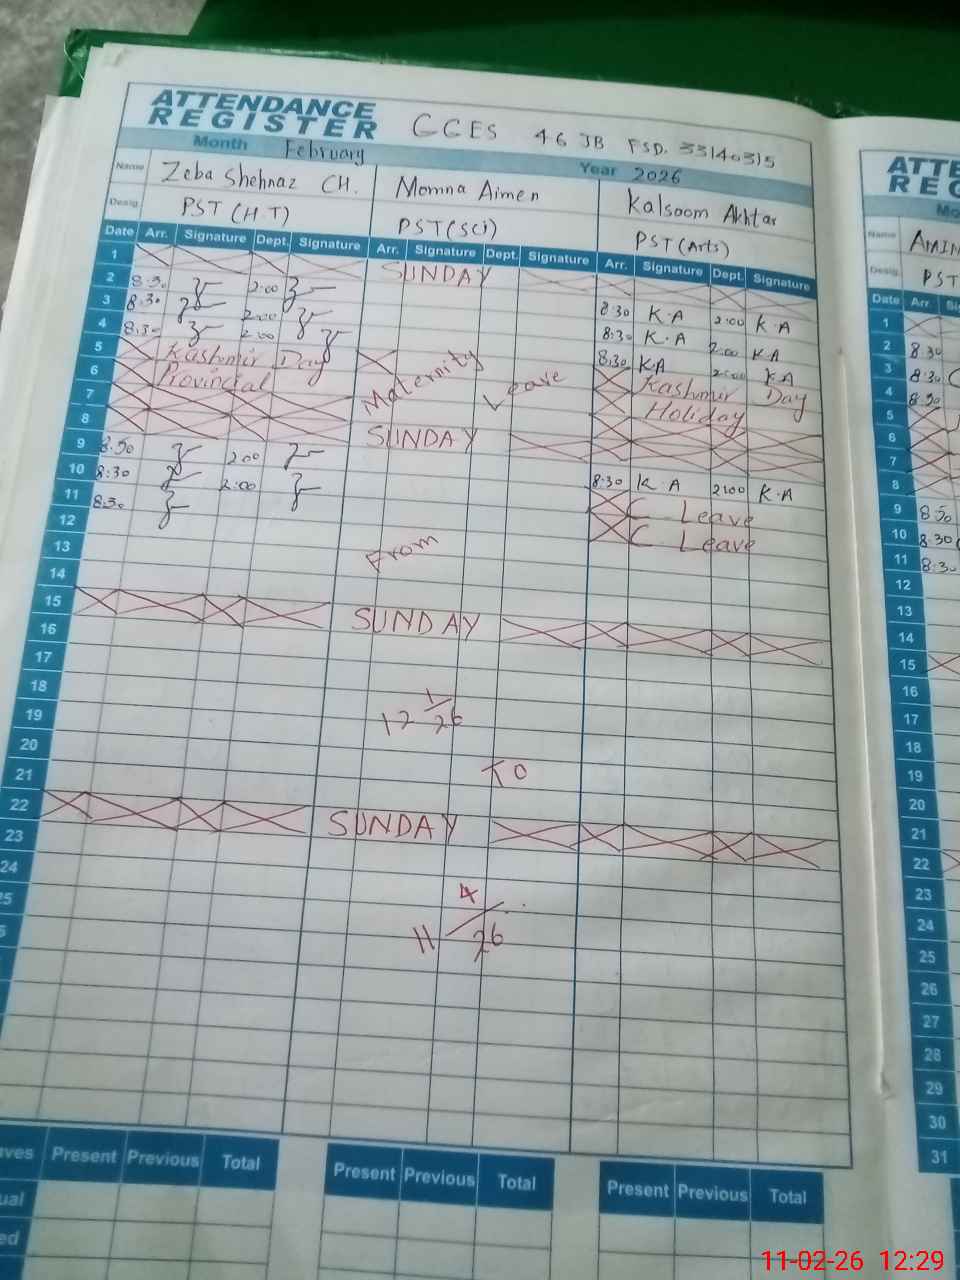 ATTENDANCE
REGISTER
GGES 46 JB FSD. 33140315
Month February Year 2026
Name Zeba Shehnaz CH. Momna Aimen Kalsoom Akhtar
Desig. PST (H.T) PST (Sci) PST (Arts)
Date Arr. Signature Dept. Signature Arr. Signature Dept. Signature Arr. Signature Dept. Signature
1 SUNDAY
2 8:30 2:00 8:30 K.A 2:00 K.A
3 8:30 2:00 8:30 K.A 2:00 KA
4 8:30 2:00 8:30 KA 2:00 KA
5 Kashmir Day Kashmir Day
6 Provincial Maternity Leave Holiday
7
8 SUNDAY
9 8:30 2:00 8:30 K.A 2:00 K.A
10 8:30 2:00 C. Leave
11 8:30 C. Leave
12
13 From
14
15 SUNDAY
16
17
18
19 12 1/26
20
21 TO
22 SUNDAY
23
24
11 4/26
Present Previous Total Present Previous Total Present Previous Total
ATTE
REG
Name AMIN
Desig. PST
Date Arr.
1
2 8:30
3 8:30
4 8:30
5
6
7
8
9 8:30
10 8:30
11 8:30
12
13
14
15
16
17
18
19
20
21
22
23
24
25
26
27
28
29
30
31
11-02-26 12:29